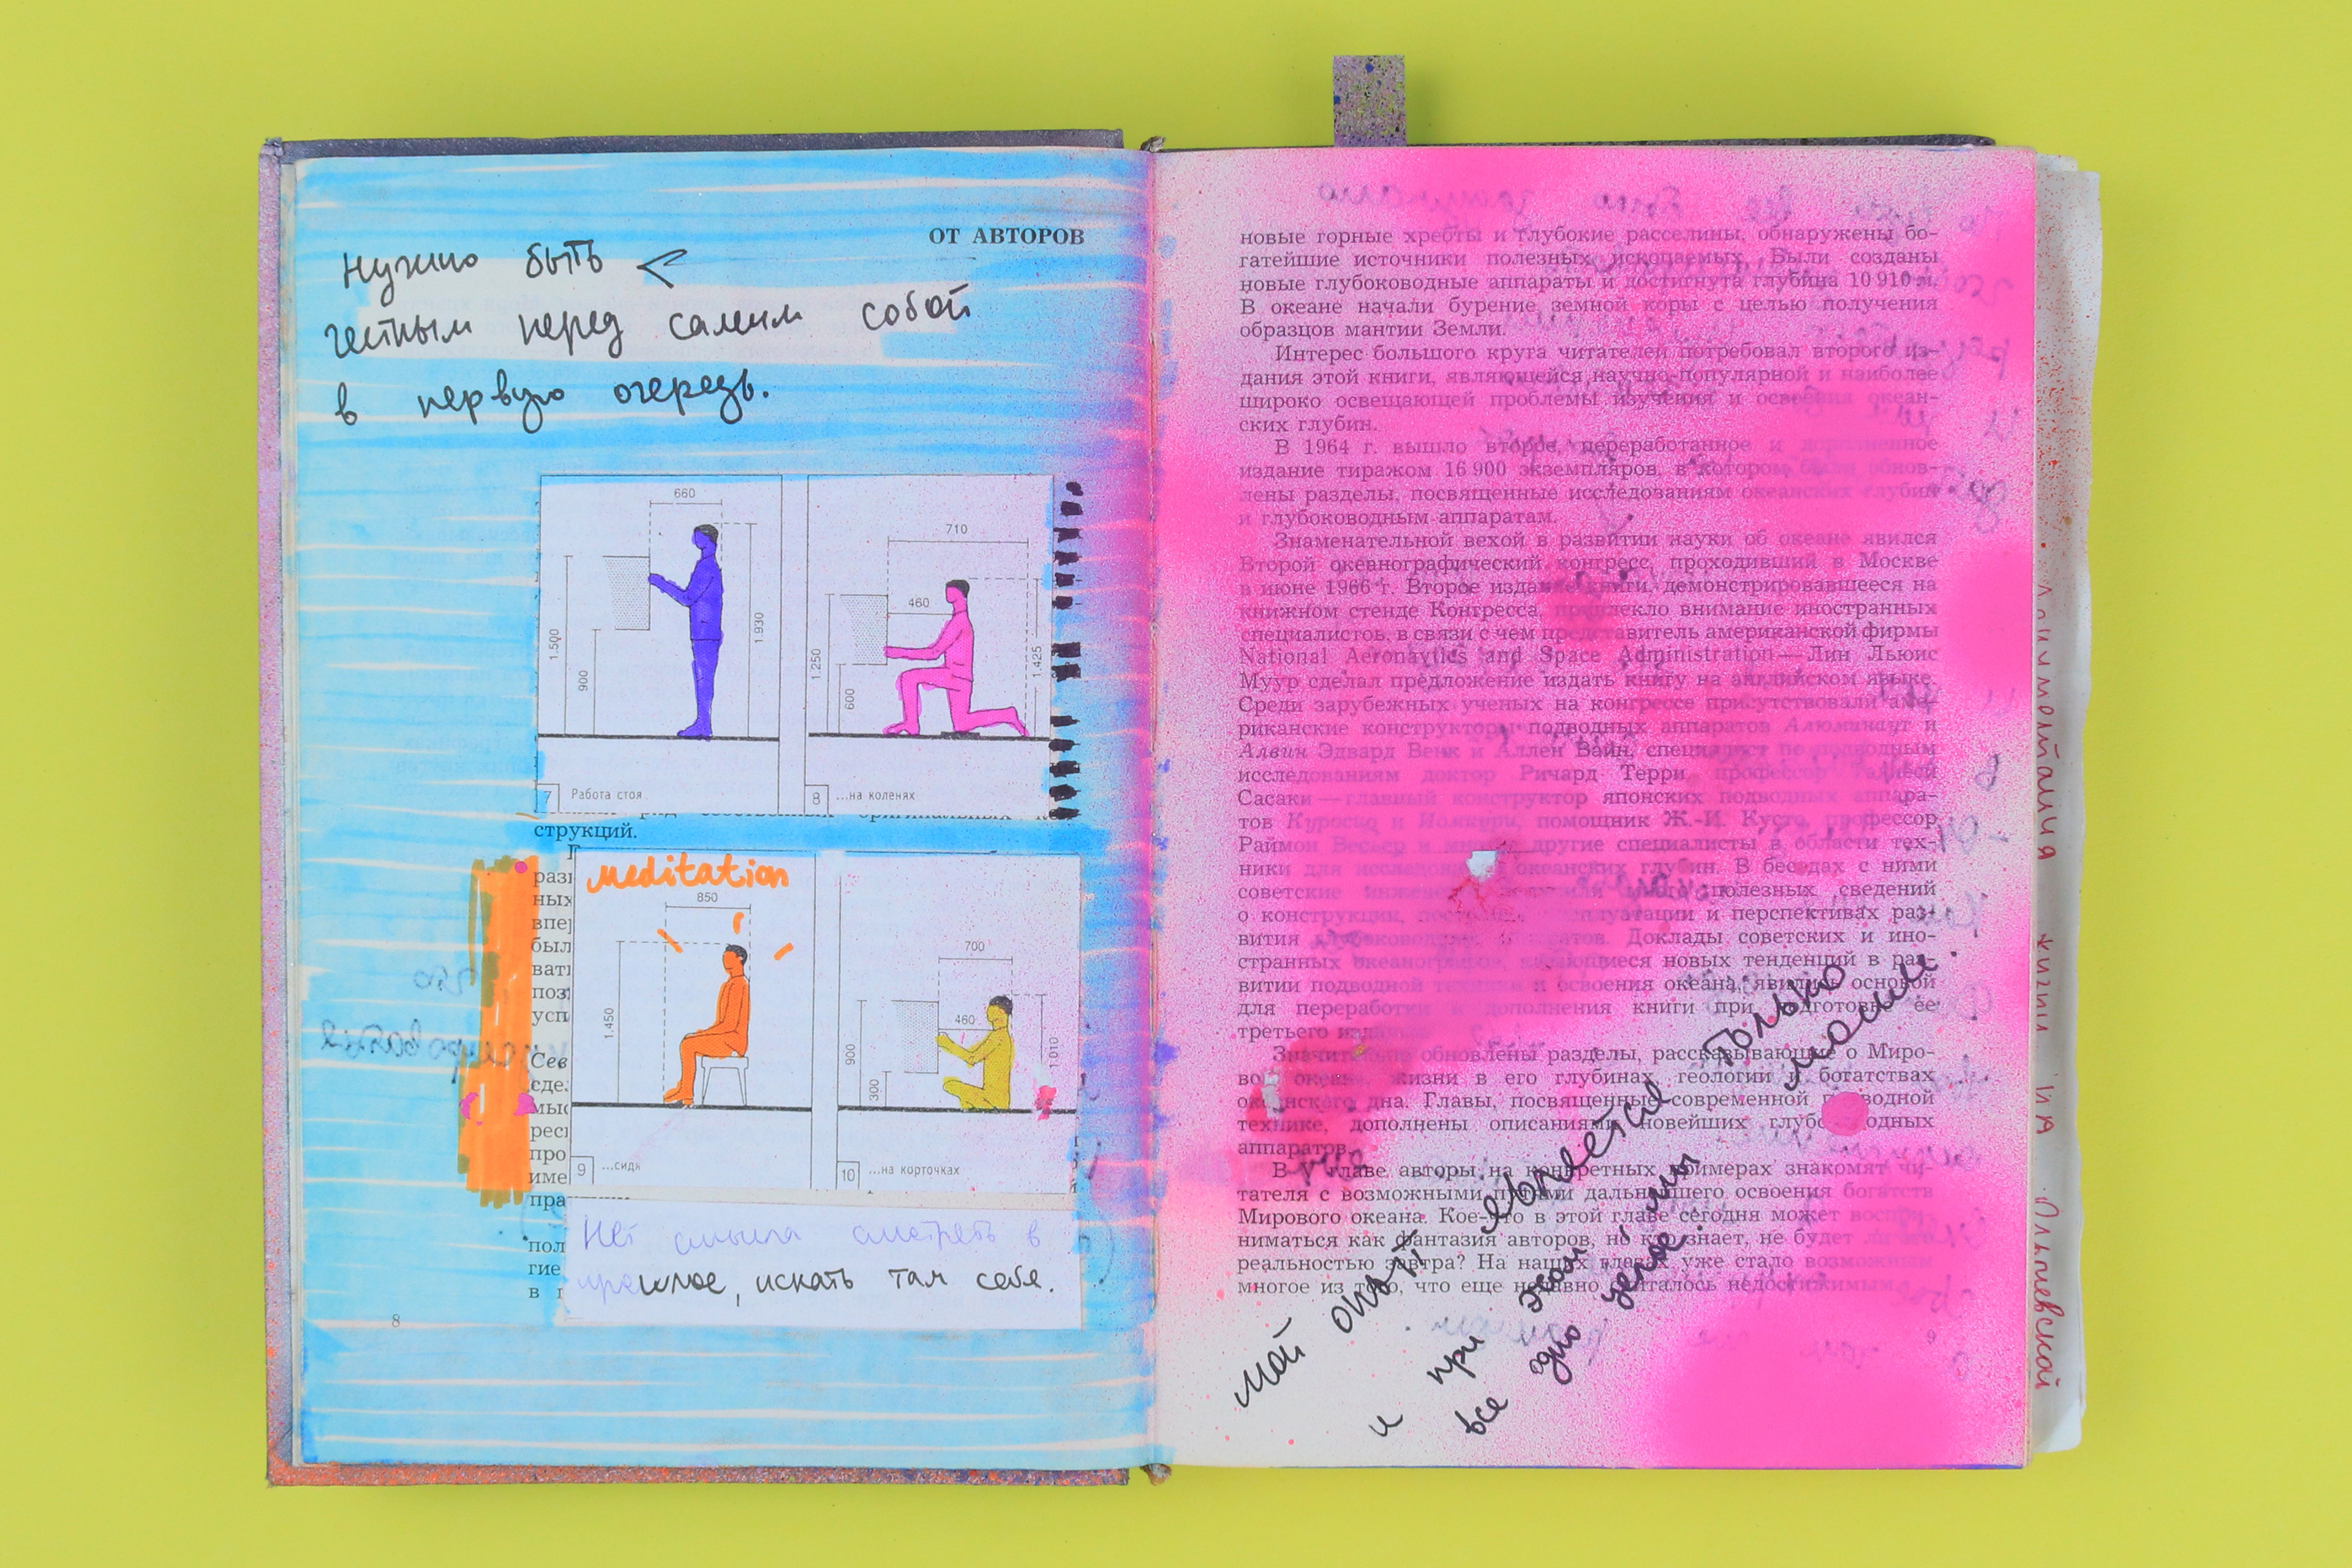 ОТ АВТОРОВ
нужно быть <
честным перед самим собой
в первую очередь.
660
1.500
900
1.930
7 Работа стоя.
710
460
1.250
600
1.425
8 ...на коленях
струкций.
разн
ных
впер
был
вать
поз
усп
Сев
сде
мыс
рес
про
име
пра
пол
гие
в
meditation
850
1.450
9 ...сидя
700
460
900
300
1.010
10 ...на корточках
Нет смысла смотреть в
прошлое, искать там себя.
8
новые горные хребты и глубокие расселины, обнаружены бо-
гатейшие источники полезных ископаемых. Были созданы
новые глубоководные аппараты и достигнута глубина 10 910 м.
В океане начали бурение земной коры с целью получения
образцов мантии Земли.
Интерес большого круга читателей потребовал второго из-
дания этой книги, являющейся научно-популярной и наиболее
широко освещающей проблемы изучения и освоения океан-
ских глубин.
В 1964 г. вышло второе, переработанное и дополненное
издание тиражом 16 900 экземпляров, в котором были обнов-
лены разделы, посвященные исследованиям океанских глубин
и глубоководным аппаратам.
Знаменательной вехой в развитии науки об океане явился
Второй океанографический конгресс, проходивший в Москве
в июне 1966 г. Второе издание книги, демонстрировавшееся на
книжном стенде Конгресса, привлекло внимание иностранных
специалистов, в связи с чем представитель американской фирмы
National Aeronaytics and Space Administration — Лин Льюис
Муур сделал предложение издать книгу на английском языке.
Среди зарубежных ученых на конгрессе присутствовали аме-
риканские конструкторы подводных аппаратов Алюминаут и
Алвин Эдвард Венк и Аллен Вайн, специалист по подводным
исследованиям доктор Ричард Терри, профессор Тадаеси
Сасаки — главный конструктор японских подводных аппара-
тов Куросио и Иомиури, помощник Ж.-И. Кусто, профессор
Раймон Весьер и многие другие специалисты в области тех-
ники для исследования океанских глубин. В беседах с ними
советские инженеры получили много полезных сведений
о конструкции, постройке, эксплуатации и перспективах раз-
вития глубоководных аппаратов. Доклады советских и ино-
странных океанографов, касающиеся новых тенденций в раз-
витии подводной техники и освоения океана, явились основой
для переработки и дополнения книги при подготовке ее
третьего издания.
Значительно обновлены разделы, рассказывающие о Миро-
вом океане, жизни в его глубинах, геологии и богатствах
океанского дна. Главы, посвященные современной подводной
технике, дополнены описаниями новейших глубоководных
аппаратов.
В V главе авторы на конкретных примерах знакомят чи-
тателя с возможными путями дальнейшего освоения богатств
Мирового океана. Кое-что в этой главе сегодня может воспри-
ниматься как фантазия авторов, но кто знает, не будет ли это
реальностью завтра? На наших глазах уже стало возможным
многое из того, что еще недавно считалось недостижимым.
9
мой опыт является только моим.
и при этом, мы
все одно целое.
документация жизни Ольшевской